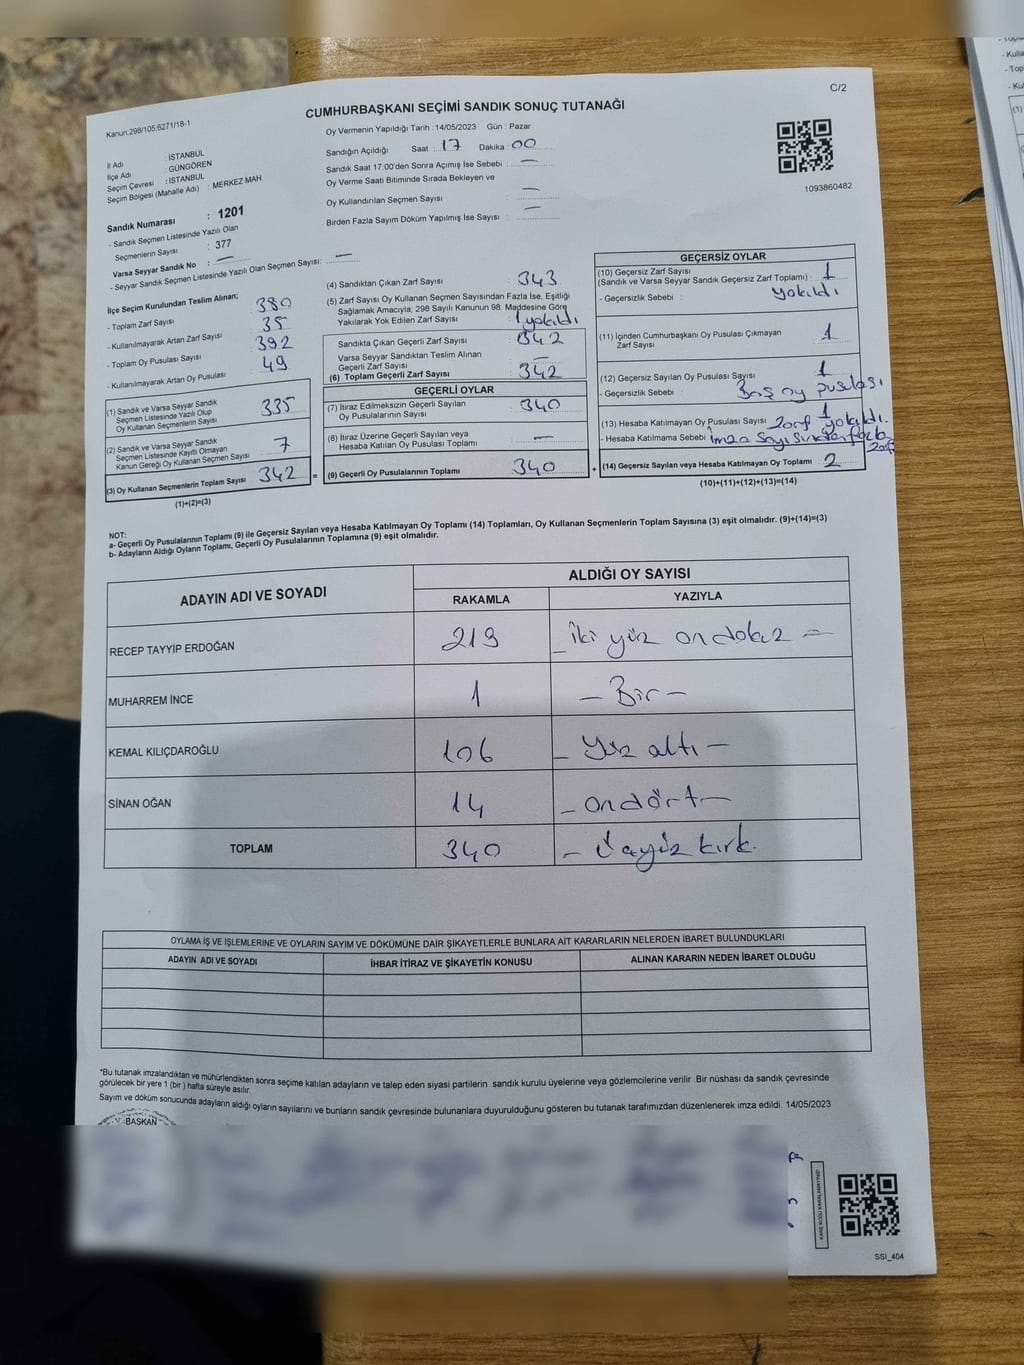 C/2
CUMHURBAŞKANI SEÇİMİ SANDIK SONUÇ TUTANAĞI
Kanun;298/105,6271/18-1
İl Adı : İSTANBUL
İlçe Adı : GÜNGÖREN
Seçim Çevresi : İSTANBUL
Seçim Bölgesi (Mahalle Adı) : MERKEZ MAH.
Sandık Numarası : 1201
- Sandık Seçmen Listesinde Yazılı Olan
Seçmenlerin Sayısı : 377
Varsa Seyyar Sandık No : —
- Seyyar Sandık Seçmen Listesinde Yazılı Olan Seçmen Sayısı: —
Oy Vermenin Yapıldığı Tarih : 14/05/2023 Gün : Pazar
Sandığın Açıldığı Saat : 17 Dakika : 00
Sandık Saat 17:00'den Sonra Açımış İse Sebebi : —
Oy Verme Saati Bitiminde Sırada Bekleyen ve
Oy Kullandırılan Seçmen Sayısı : —
Birden Fazla Sayım Döküm Yapılmış İse Sayısı : —
1093860482
İlçe Seçim Kurulundan Teslim Alınan;
- Toplam Zarf Sayısı : 380
- Kullanılmayarak Artan Zarf Sayısı : 35
- Toplam Oy Pusulası Sayısı : 392
- Kullanılmayarak Artan Oy Pusulası : 49
(1) Sandık ve Varsa Seyyar Sandık
Seçmen Listesinde Yazılı Olup
Oy Kullanan Seçmenlerin Sayısı : 335
(2) Sandık ve Varsa Seyyar Sandık
Seçmen Listesinde Kayıtlı Olmayan
Kanun Gereği Oy Kullanan Seçmen Sayısı : 7
(3) Oy Kullanan Seçmenlerin Toplam Sayısı : 342 =
(1)+(2)=(3)
(4) Sandıktan Çıkan Zarf Sayısı : 343
(5) Zarf Sayısı Oy Kullanan Seçmen Sayısından Fazla İse, Eşitliği
Sağlamak Amacıyla, 298 Sayılı Kanunun 98. Maddesine Göre
Yakılarak Yok Edilen Zarf Sayısı : 1 yakıldı
Sandıkta Çıkan Geçerli Zarf Sayısı : 342
Varsa Seyyar Sandıktan Teslim Alınan
Geçerli Zarf Sayısı : —
(6) Toplam Geçerli Zarf Sayısı : 342
GEÇERLİ OYLAR
(7) İtiraz Edilmeksizin Geçerli Sayılan
Oy Pusulalarının Sayısı : 340
(8) İtiraz Üzerine Geçerli Sayılan veya
Hesaba Katılan Oy Pusulası Toplamı : —
(9) Geçerli Oy Pusulalarının Toplamı : 340 +
GEÇERSİZ OYLAR
(10) Geçersiz Zarf Sayısı
(Sandık ve Varsa Seyyar Sandık Geçersiz Zarf Toplamı) : 1
- Geçersizlik Sebebi : yakıldı
(11) İçinden Cumhurbaşkanı Oy Pusulası Çıkmayan
Zarf Sayısı : 1
(12) Geçersiz Sayılan Oy Pusulası Sayısı : 1
- Geçersizlik Sebebi : Boş oy pusulası
(13) Hesaba Katılmayan Oy Pusulası Sayısı : 1 zarf yakıldı.
- Hesaba Katılmama Sebebi : İmza sayısından fazla zarf
(14) Geçersiz Sayılan veya Hesaba Katılmayan Oy Toplamı : 2
(10)+(11)+(12)+(13)=(14)
NOT:
a- Geçerli Oy Pusulalarının Toplamı (9) ile Geçersiz Sayılan veya Hesaba Katılmayan Oy Toplamı (14) Toplamları, Oy Kullanan Seçmenlerin Toplam Sayısına (3) eşit olmalıdır. (9)+(14)=(3)
b- Adayların Aldığı Oyların Toplamı, Geçerli Oy Pusulalarının Toplamına (9) eşit olmalıdır.
ADAYIN ADI VE SOYADI ALDIĞI OY SAYISI
RAKAMLA YAZIYLA
RECEP TAYYİP ERDOĞAN 219 – İki yüz ondokuz –
MUHARREM İNCE 1 – Bir –
KEMAL KILIÇDAROĞLU 106 – Yüz altı –
SİNAN OĞAN 14 – ondört –
TOPLAM 340 – Üçyüz kırk.
OYLAMA İŞ VE İŞLEMLERİNE VE OYLARIN SAYIM VE DÖKÜMÜNE DAİR ŞİKAYETLERLE BUNLARA AİT KARARLARIN NELERDEN İBARET BULUNDUKLARI
ADAYIN ADI VE SOYADI İHBAR İTİRAZ VE ŞİKAYETİN KONUSU ALINAN KARARIN NEDEN İBARET OLDUĞU
*Bu tutanak imzalandıktan ve mühürlendikten sonra seçime katılan adayların ve talep eden siyasi partilerin sandık kurulu üyelerine veya gözlemcilerine verilir .Bir nüshası da sandık çevresinde
görülecek bir yere 1 (bir) hafta süreyle asılır.
Sayım ve döküm sonucunda adayların aldığı oyların sayılarını ve bunların sandık çevresinde bulunanlara duyurulduğunu gösteren bu tutanak tarafımızdan düzenlenerek imza edildi. 14/05/2023
BAŞKAN
SSİ_404